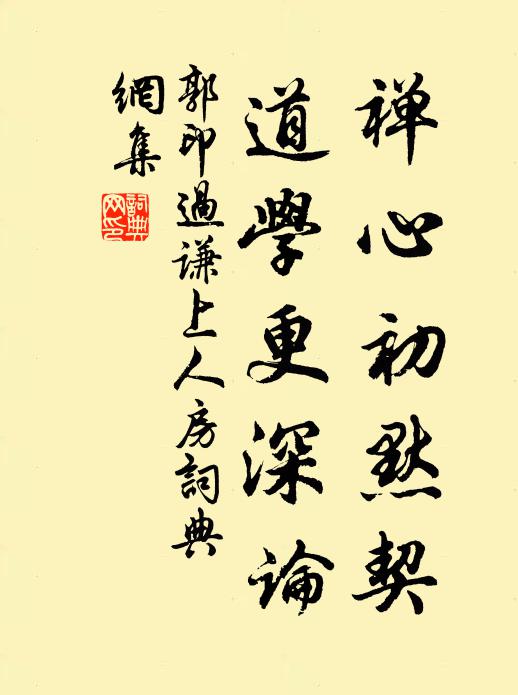 禅心初默契
道學更深論
郭印過謙上人房詞典
網集
詞典
网印